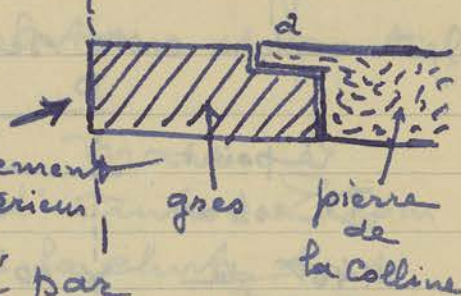 a
ement
érieur
grès
pierre
de
la Colline
par